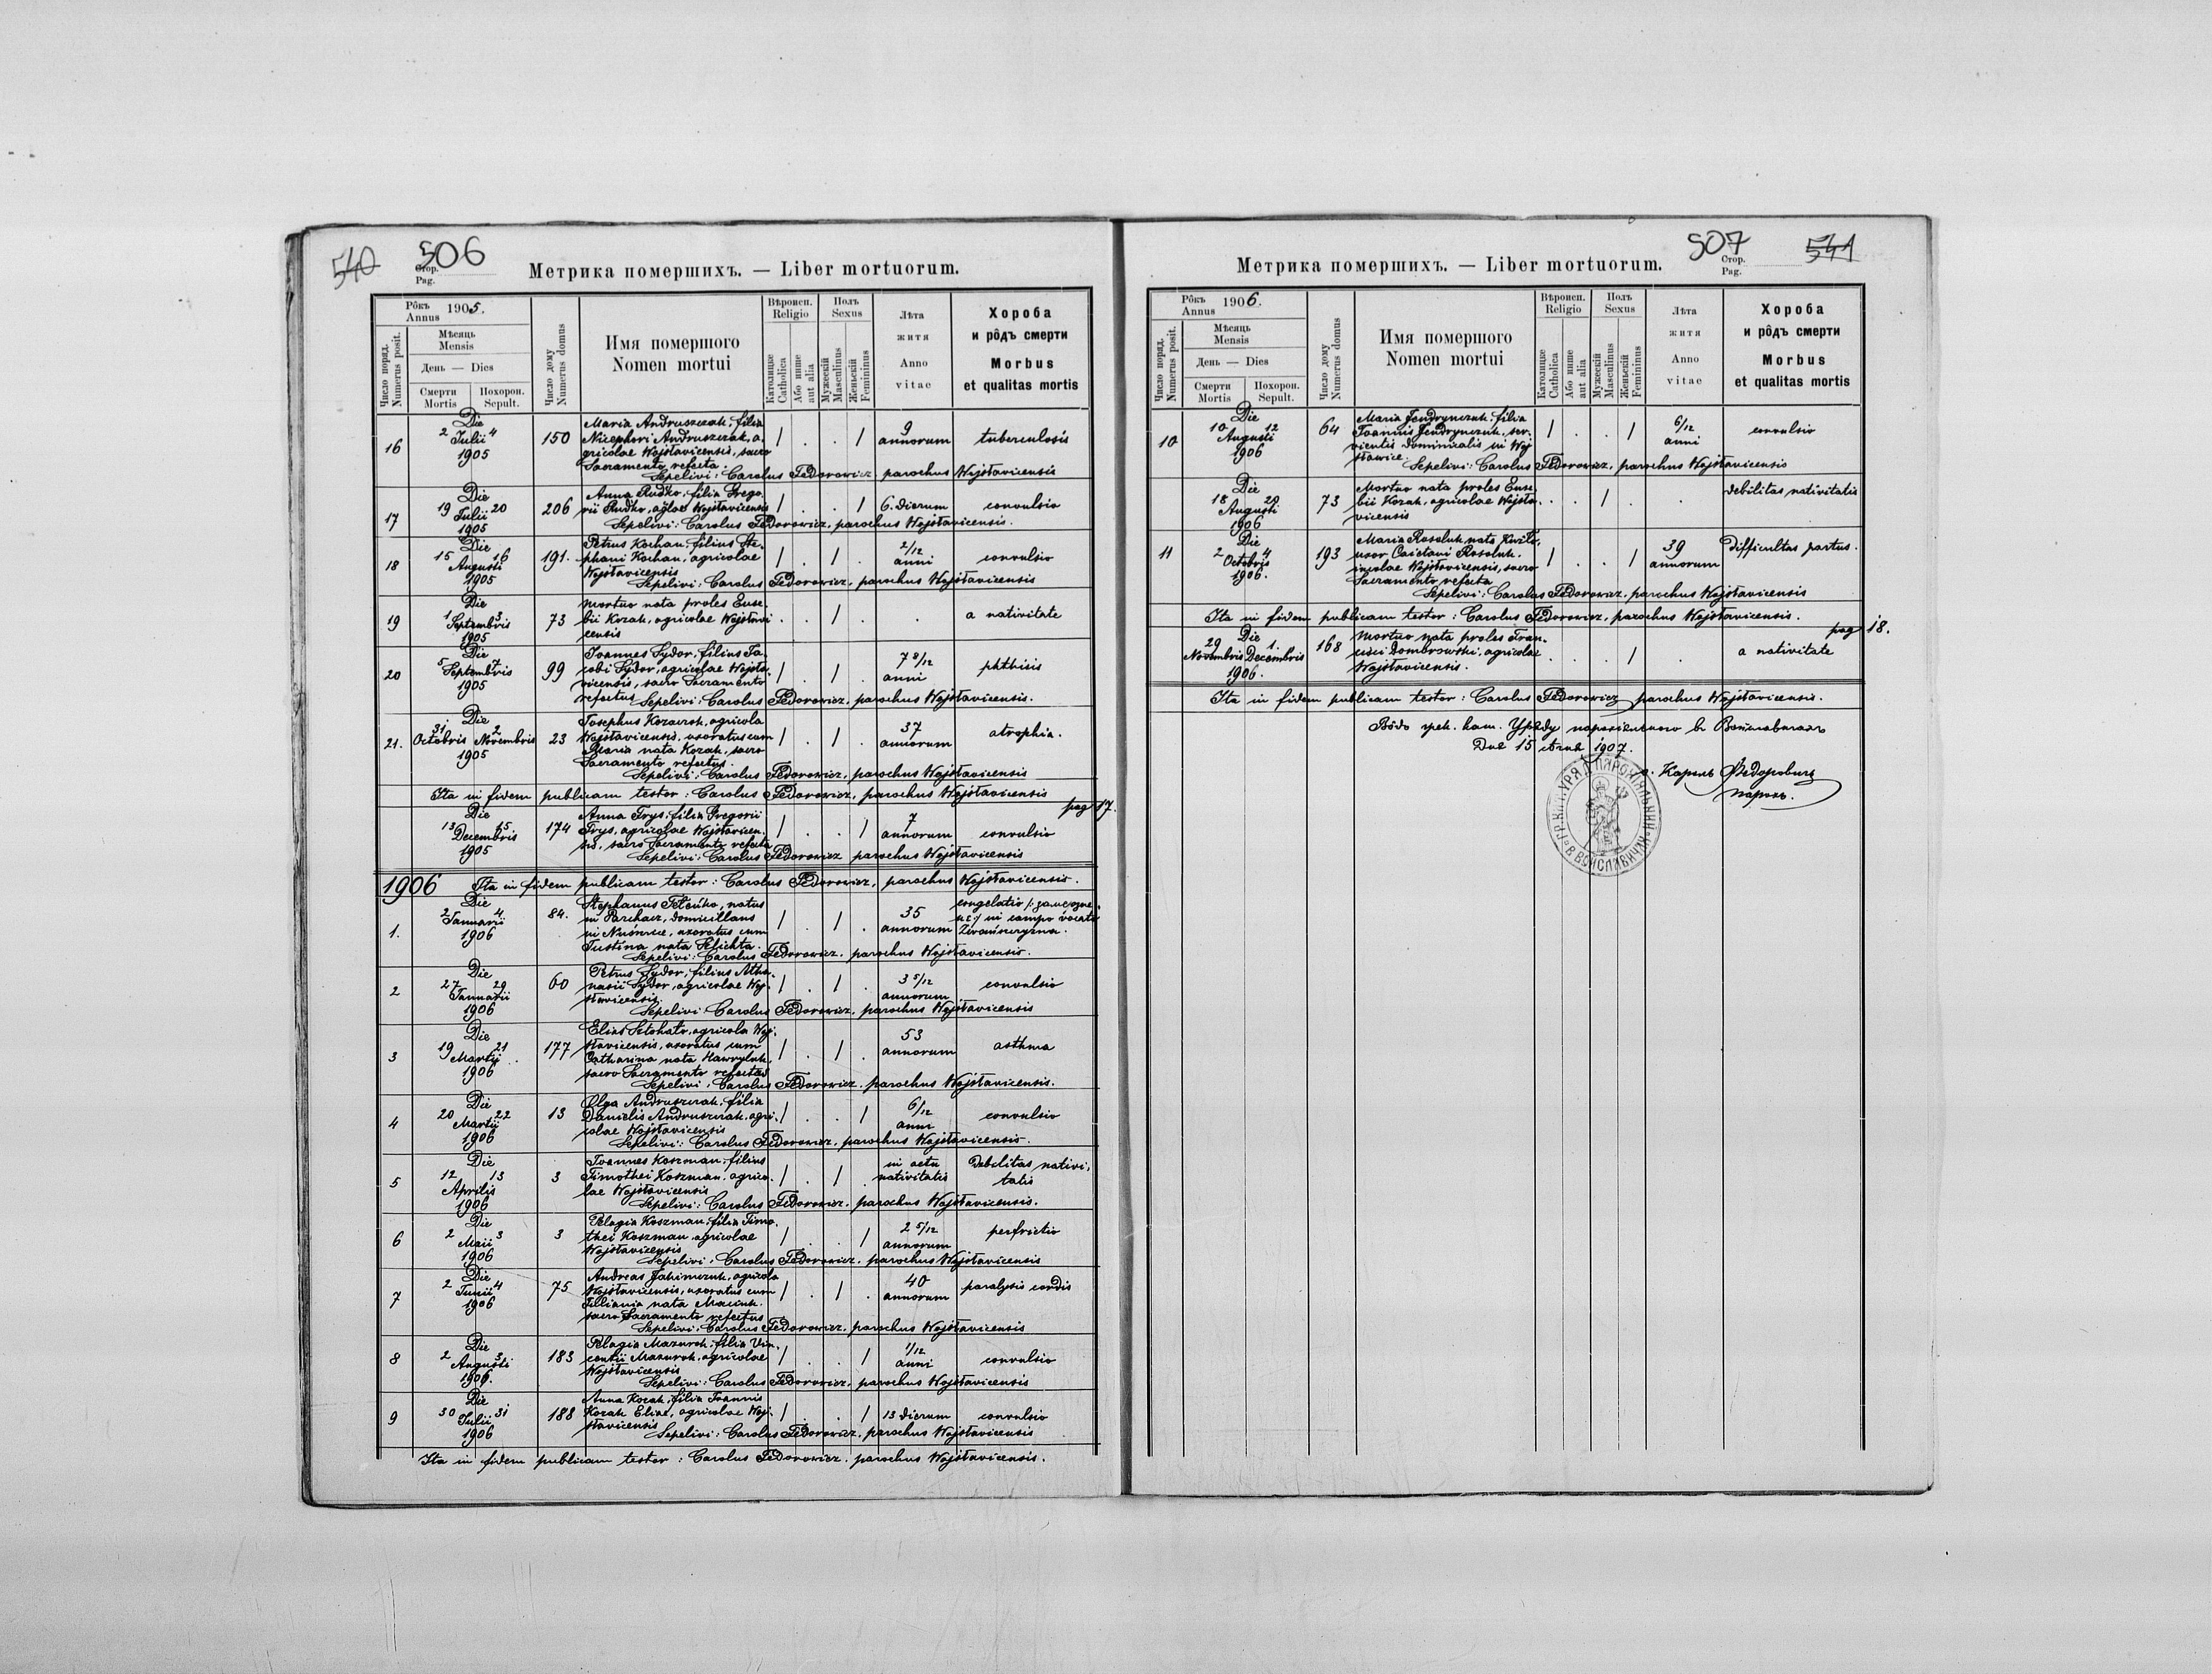 540 506
Стор.
Pag.
Метрика помершихъ. — Liber mortuorum.
Рôкъ
Annus 1905.
Число поряд.
Numerus posit.
Мѣсяць
Mensis
День — Dies
Смерти
Mortis
Похорон.
Sepult.
Число дому
Numerus domus
Имя помершого
Nomen mortui
Вѣроисп.
Religio
Католицке
Catholica
Або инше
aut alia
Полъ
Sexus
Мужескій
Masculinus
Женьскій
Femininus
Лѣта
житя
Anno
vitae
Хороба
и рôдъ смерти
Morbus
et qualitas mortis
16 2 Die 4 Julii 1905 150 Maria Andruszczak, filia
Nicephori Andruszczak, a-
gricolae Wojsławicensis, sacro
Sacramento refecta. 9 annorum tuberculosis
Sepelivi: Carolus Fedorowicz, parochus Wojsławicensis
17 19 Die 20 Julii 1905 206 Anna Rudko, filia Grego-
rii Rudko, agłae Wojsławicensis 6. dierum convulsio
Sepelivi: Carolus Fedorowicz, parochus Wojsławicensis.
18 15 Die 16 Augusti 1905 191. Petrus Kochan, filius Ste-
phani Kochan, agricolae
Wojsławicensis 2/12 anni convulsio
Sepelivi: Carolus Fedorowicz, parochus Wojsławicensis
19 1 Die 3 Septembris 1905 73 Mortuo nata proles Euse-
bii Kozak, agricolae Wojsławi
censis a nativitate
20 5 Die 7 Septembris 1905 99 Joannes Sydor, filius Ja-
cobi Sydor, agricolae Wojsła-
vicensis, sacro Sacramento 7 8/12 anni phthisis
refectus Sepelivi: Carolus Fedorowicz, parochus Wojsławicensis.
21. Die 31 Octobris 2 Novembris 1905 23 Josephus agricola
Wojsławicensis, uxoratus cum
Maria nata Kozak, sacro
Sacramento refectus. 37 annorum atrophia.
Sepelivi: Carolus Fedorowicz, parochus Wojsławicensis
Ita in fidem publicam testor: Carolus Fedorowicz, parochus Wojsławicensis
pag 17.
13 Die 15 Decembris 1905 174 Anna Trys, filia Gregorii
Trys, agricolae Wojsławicen-
sis, sacro Sacramento refecta 7 annorum convulsio
Sepelivi: Carolus Fedorowicz parochus Wojsławicensis
1906 Ita in fidem publicam testor: Carolus Fedorowicz, parochus Wojsławicensis.
1. 2 Die 4 Januarii 1906 84. Stephanus natus
in Parchacz, domicilians
in uxoratus cum
Justina nata 35 annorum congelatio
in campo vocato
Sepelivi: Carolus Fedorowicz, parochus Wojsławicensis.
2 27 Die 29 Januarii 1906 60 Petrus Sydor, filius Atha-
nasii Sydor, agricolae Woj-
sławicensis. 3 5/12 annorum convulsio
Sepelivi Carolus Fedorowicz, parochus Wojsławicensis
3 19 Die 21 Martii 1906 177 Elias agricola Woj-
sławicensis, uxoratus cum
Catharina nata Hawryluk,
sacro Sacramento refectus 53 annorum asthma
Sepelivi, Carolus Fedorowicz, parochus Wojsławicensis.
4 20 Die 22 Martii 1906 13 Olga Andruszczak, filia
Danielis Andruszczak, agri-
colae Wojsławicensis 6/12 anni convulsio
Sepelivi: Carolus Fedorowicz, parochus Wojsławicensis.
5 12 Die 13 Aprilis 1906 3 Joannes Koszman, filius
Timothei Koszman, agrico-
lae Wojsławicensis in actu nativitatis debilitas nativi-
tatis
Sepelivi: Carolus Fedorowicz, parochus Wojsławicensis.
6 2 Die 3 Maii 1906 3 Pelagia Koszman, filia Timo-
thei Koszman agricolae
Wojsławicensis 2 5/12 annorum perfrictio
Sepelivi, Carolus Fedorowicz, parochus Wojsławicensis
7 2 Die 4 Junii 1906 75 Andreas Jakimczuk, agricola
Wojsławicensis, uxoratus cum
Julliania nata Maciuk.
sacro Sacramento refectus 40 annorum paralysis cordis
Sepelivi, Carolus Fedorowicz, parochus Wojsławicensis
8 2 Die 3 Augusti 1906. 183 Pelagia Mazurok, filia Vin-
centii Mazurok, agricolae
Wojsławicensis 1/12 anni convulsio
Sepelivi: Carolus Fedorowicz, parochus Wojsławicensis
9 30 Die 31 Julii 1906 188 Anna Kozak, filia Joannis
Kozak Eliae, agricolae Woj-
sławicensis 13 dierum convulsio
Sepelivi: Carolus Fedorowicz, parochus Wojsławicensis
Ita in fidem publicam testor: Carolus Fedorowicz. parochus Wojsławicensis.
507 541
Стор.
Pag.
Метрика помершихъ. — Liber mortuorum.
Рôкъ
Annus 1906.
Число поряд.
Numerus posit.
Мѣсяць
Mensis
День — Dies
Смерти
Mortis
Похорон.
Sepult.
Число дому
Numerus domus
Имя помершого
Nomen mortui
Вѣроисп.
Religio
Католицке
Catholica
Або инше
aut alia
Полъ
Sexus
Мужескій
Masculinus
Женьскій
Femininus
Лѣта
житя
Anno
vitae
Хороба
и рôдъ смерти
Morbus
et qualitas mortis
10 10 Die 12 Augusti 1906 64 Maria Jendrynczuk, filia
Joannis Jendrynczuk, ser-
vientis dominicalis in Woj
sławice. 6/12 anni convulsio
Sepelivi: Carolus Fedorowicz, parochus Wojsławicensis
18 Die 20 Augusti 1906 73 Mortuo nata proles Euse-
bii Kozak, agricolae Wojsła-
vicensis debilitas nativitatis
11 2 Die 4 Octobris 1906. 193 Maria Rosoluk, nata
uxor Caietani Rosoluk.
incolae Wojsławicensis, sacro
Sacramento refecta 39 annorum difficultas partus.
Sepelivi: Carolus Fedorowicz, parochus Wojsławicensis
Ita in fidem publicam testor: Carolus Fedorowicz, parochus Wojsławicensis.
pag 18.
29 Die 1. Novembris Decembris 1906. 168 Mortuo nata proles Fran-
cisci Dombrowski, agricolae
Wojsławicensis. a nativitate
Ita in fidem publicam testor: Carolus Fedorowicz parochus Wojsławicensis.
Вôдъ грек. кат. Уряду парохіяльного въ Войславичахъ
Дня 15 1907.
о. Кароль Федоровичъ
парохъ.
ГР. К. УРЯДЪ ПАРОХІЯЛЬНЫЙ ВЪ ВОЙСЛАВИЧАХЪ